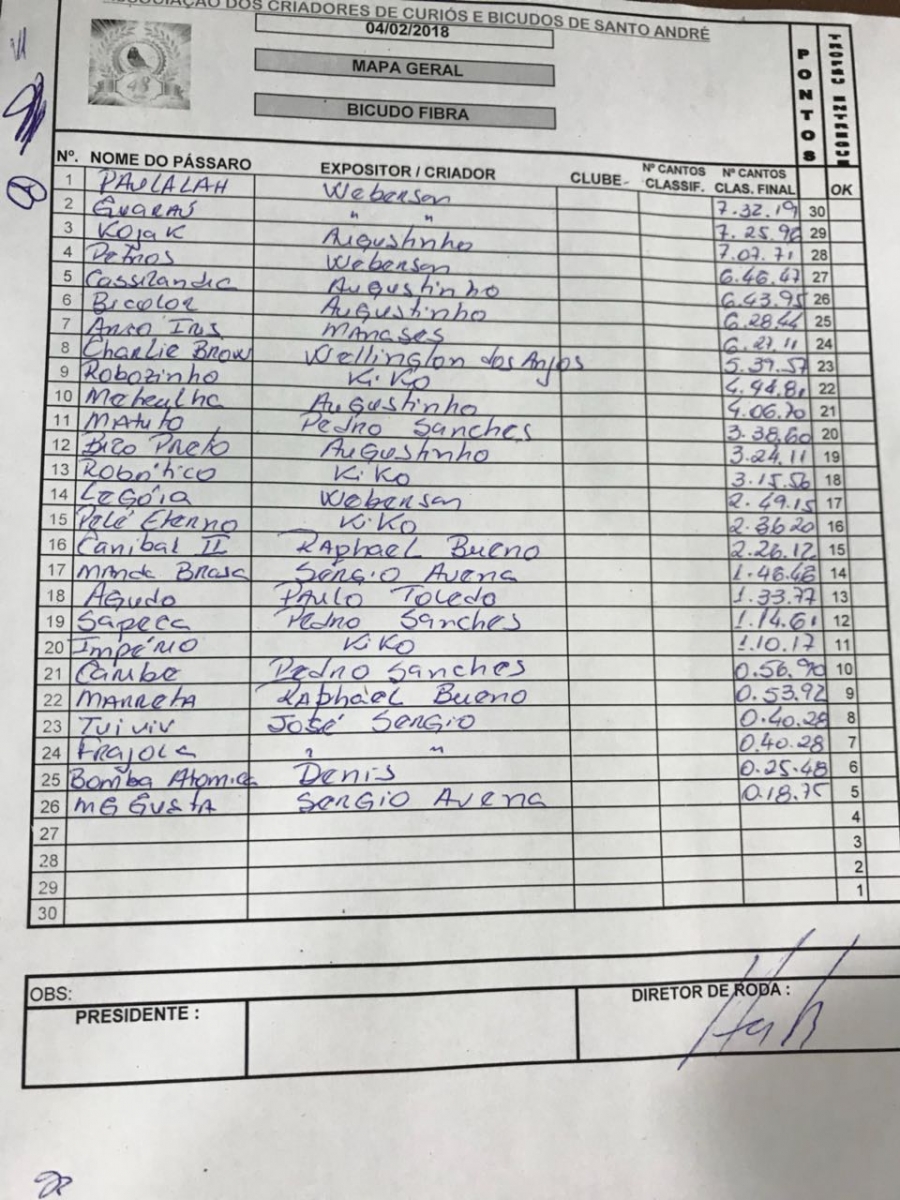 ASSOCIAÇÃO DOS CRIADORES DE CURIÓS E BICUDOS DE SANTO ANDRÉ
04/02/2018
MAPA GERAL
BICUDO FIBRA
48
PONTOS
Nº. NOME DO PÁSSARO EXPOSITOR / CRIADOR CLUBE Nº CANTOS CLASSIF. Nº CANTOS CLAS. FINAL OK
1 PAULALAH Weberson 7.32.19 30
2 Guaraú " " 7.25.96 29
3 Kojak Augustinho 7.07.71 28
4 Detros Weberson 6.46.47 27
5 Cassilandia Augustinho 6.43.95 26
6 Bicolor Augustinho 6.28.44 25
7 Manases 6.27.11 24
8 Charlie Brow Wellington dos Anjos 5.39.57 23
9 Robozinho KiKo 4.44.81 22
10 Augustinho 4.06.70 21
11 Matuto Pedro Sanches 3.38.60 20
12 Bico Preto Augustinho 3.24.11 19
13 Robótico KiKo 3.15.56 18
14 Legóia Weberson 2.49.15 17
15 Pelé Eterno KiKo 2.36.20 16
16 Canibal II Raphael Bueno 2.26.12 15
17 Manda Brasa Sérgio Avena 1.46.46 14
18 Agudo Paulo Toledo 1.33.77 13
19 Sapeca Pedro Sanches 1.14.61 12
20 Império KiKo 1.10.17 11
21 Cambe Pedro Sanches 0.56.90 10
22 Marreta Raphael Bueno 0.53.92 9
23 Tuiviv José Sérgio 0.40.28 8
24 Frajola " " 0.40.28 7
25 Bomba Atomica Denis 0.25.48 6
26 ME GUSTA Sergio Avena 0.18.75 5
27 4
28 3
29 2
30 1
OBS:
PRESIDENTE : DIRETOR DE RODA :